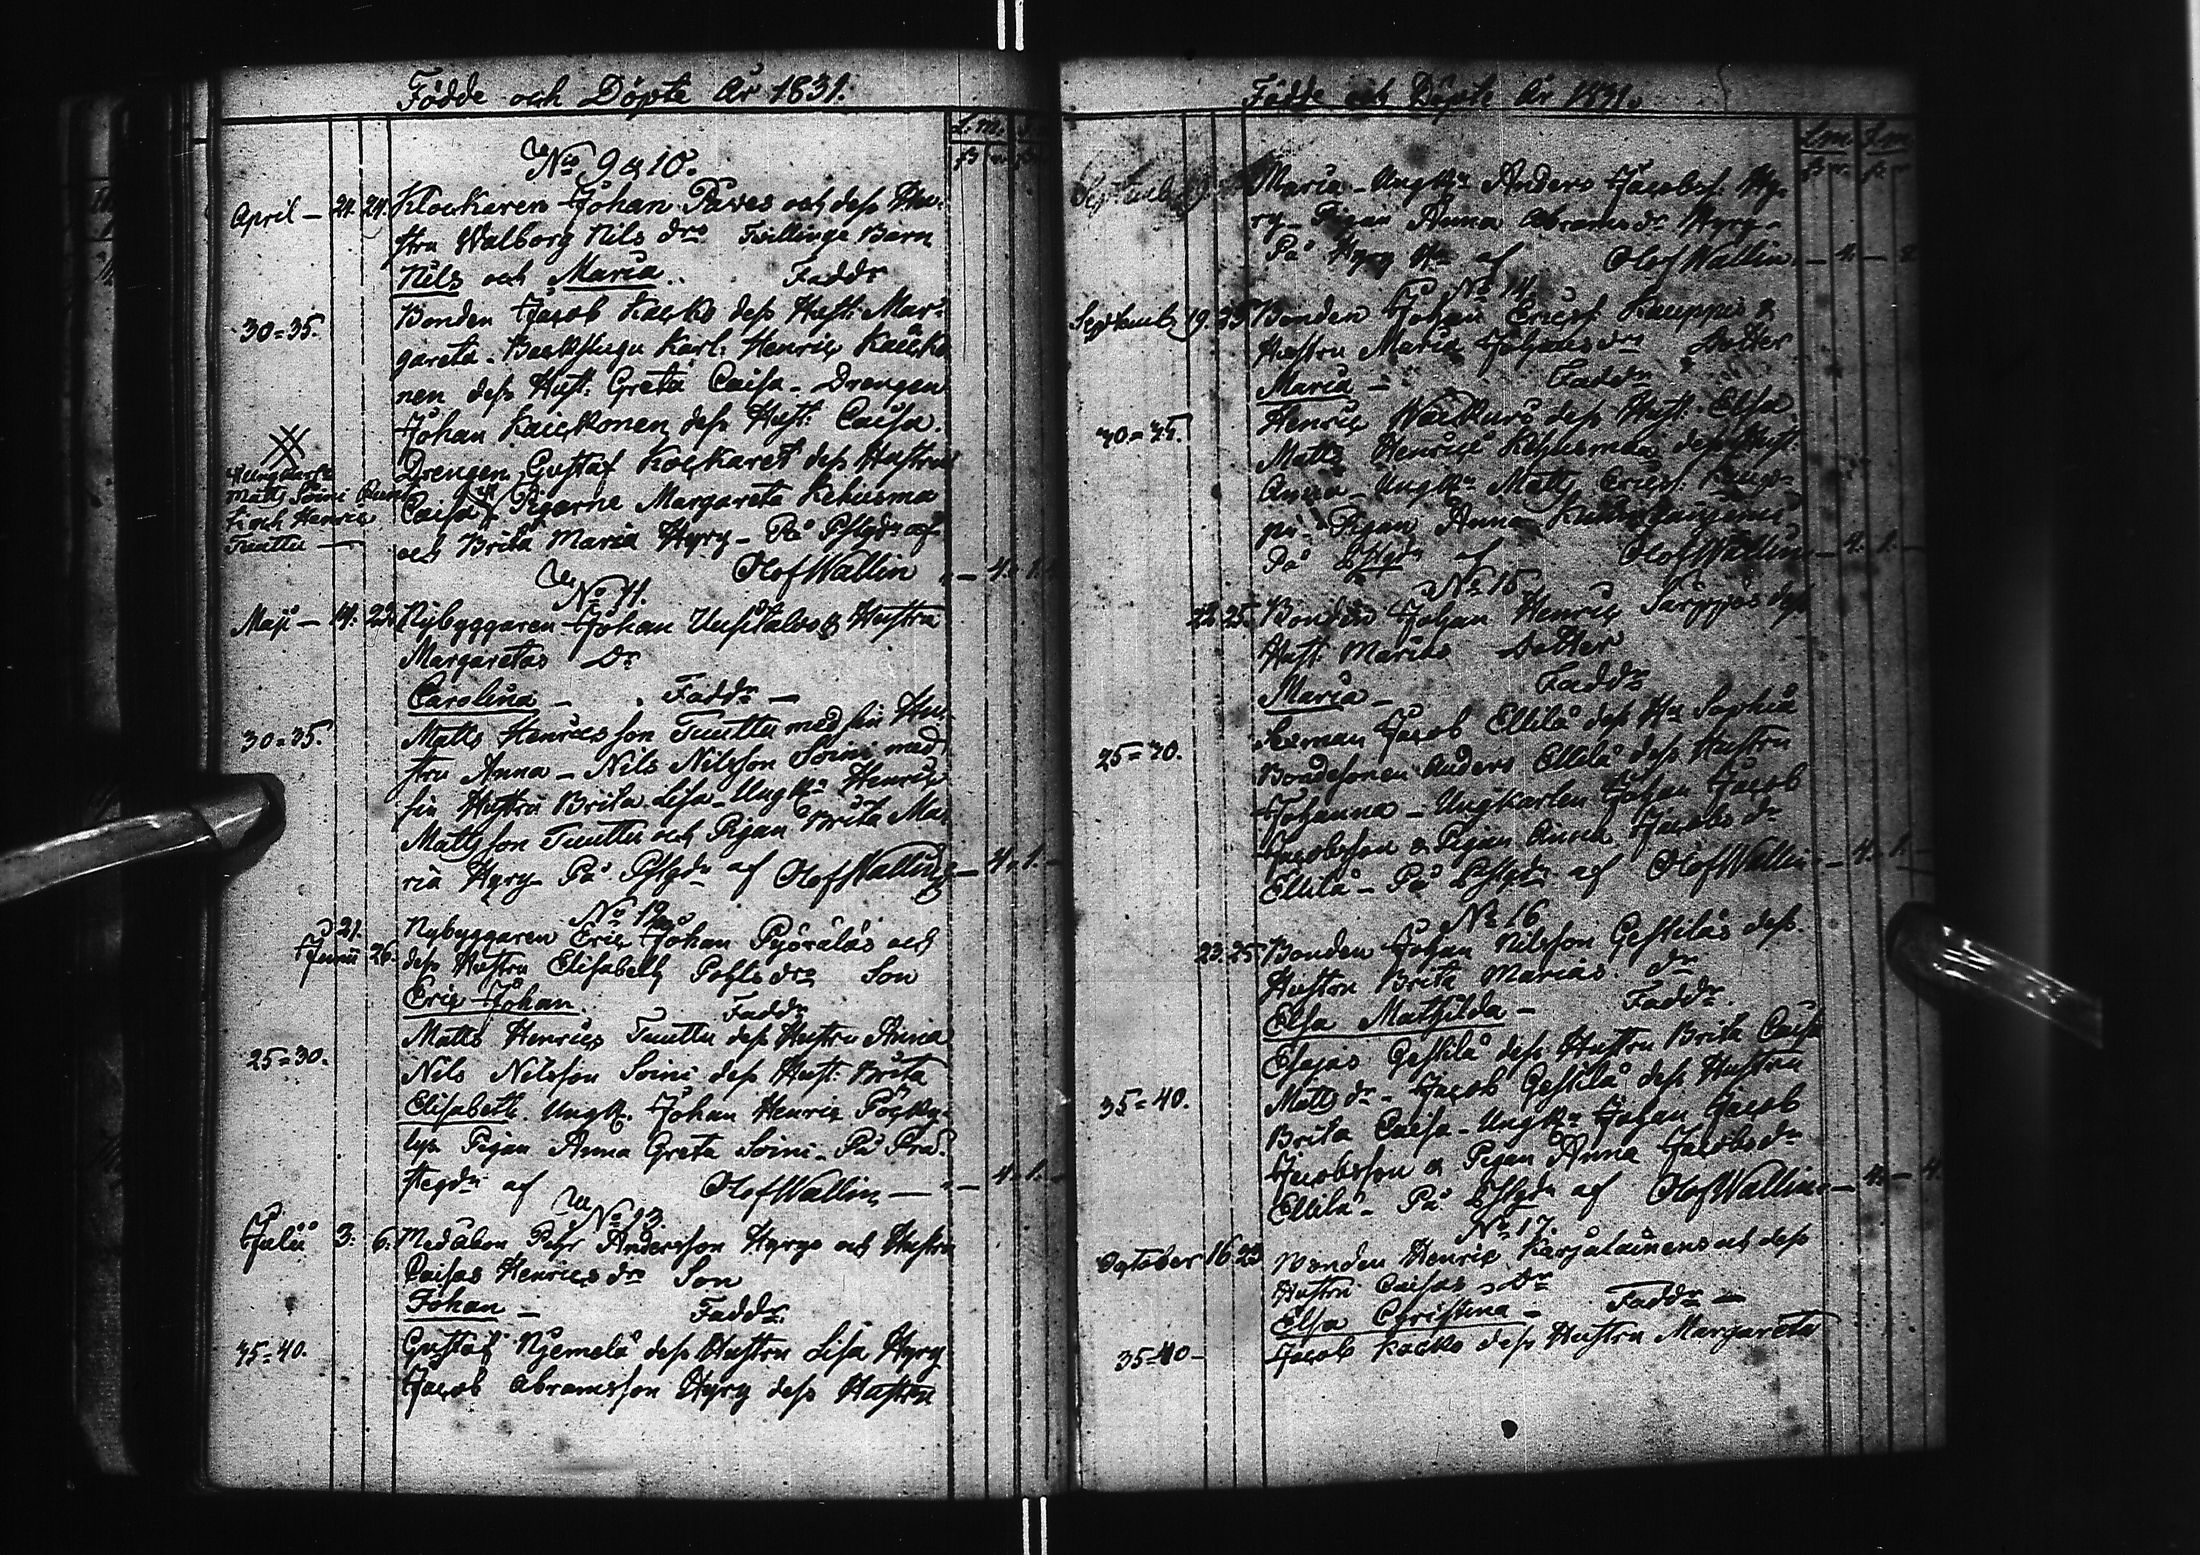 Födde och Döpte År 1831.
L. m. S. m.
No 9 & 10.
April — 21. 24. Klockaren Johan Pāves och dess Hu-
stru Walborg Nils drs Tvillinge Barn
Nils och Maria. Faddr
30=35. Bonden Jacob Kacko dess Hust: Mar-
gareta. Backstugu Karl. Henric
nen dess Hust: Greta Caisa - Drengen
Johan Kaickonen dess Hust: Caisa.
Drengen Gustaf dess Hustru
Caisa # Pigorne Margareta Kehusmaa
och Brita Maria Hyry - På Pstgdn af
Olof Wallin — 4. 1.
#
Ungkarle
Matts Soini
och Henric
Tuuttu —
No 11.
Maji — 14. 23. Nybyggaren Johan Uusitalos & Hustru
Margaretas Dr
Carolina — Faddr —
30=35. Matts Henricsson Tuuttu med sin Hu-
stru Anna - Nils Nilsson Soini med
sin Hustru Brita Lisa - Ungk: Henric
Mattsson Tuuttu och Pigan Brita Ma-
ria Hyry - På Pstgdn af Olof Wallin — 4. 1. —
No 12.
21. Junii 26. Nybyggaren Eric Johan Pyöräläs och
dess Hustru Elisabeth Pehrs drs Son
Eric Johan. Faddr
25=30. Matts Henrics Tuuttu dess Hustru Anna
Nils Nilsson Soini dess Hust: Brita
Elisabeth. Ungk. Johan Henric
Pigan Anna Greta Soini - På Prä-
stegdn af Olof Wallin — 4. 1. —
No 13.
Julii 3. 6. Medåbon Pehr Andersson Hyrys och Hustru
Caisas Henrics drs Son
Johan — Faddr.
35=40. Gustaf Njemelä dess Hustru Lisa Hyry
Jacob Abramsson Hyry dess Hustru
Födde och Döpte År 1831.
L. m. S. m.
September Maria - Ungkn Anders Jacobss. Hy-
ry - Pigan Anna Abrams dr Hyry -
På Hyry Hn af Olof Wallin — 4. —
No 14
September 19. 25. Bonden Johan Ericss. Kauppis &
Hustru Marias Johans drs Dotter
Maria — Faddr
30=35. Henric dess Hust: Elisa
Matts Henrics Kehusmaa dess Hust:
Anna - Ungkn Matts Ericss. Kaup-
pi - Pigan Anna
På Pstgdn af Olof Wallin — 4. 1. —
No 15
22. 25. Bonden Johan Henric dess
Hust: Marias Dotter
Maria — Faddr
25=30. Jacob Ellilä dess Hu Sophia
Bondesonen Anders Ellilä dess Hustru
Johanna - Ungkarlen Johan Jacob
Jacobsson & Pigan Anna Jacobs dr
Ellilä - På Pstgdn af Olof Wallin — 4. 1. —
No 16
23. 25. Bonden Johan Nilsson Gestiläs dess
Hustru Brita Marias dr
Elsa Mathilda — Faddr.
35=40. Esajas Gestilä dess Hustru Brita Caisa
Matts dr - Jacob Gestilä dess Hustru
Brita Caisa - Ungkn Johan Jacob
Jacobsson & Pigan Anna Jacobs dr
Ellilä - På Pstgdn af Olof Wallin — 4. — 4.
No 17.
October 16. 23. Bonden Henric Karjalainens och dess
Hustru Caisas Dr
Elsa Christina — Faddr —
35=40 — Jacob Kacko dess Hustru Margareta